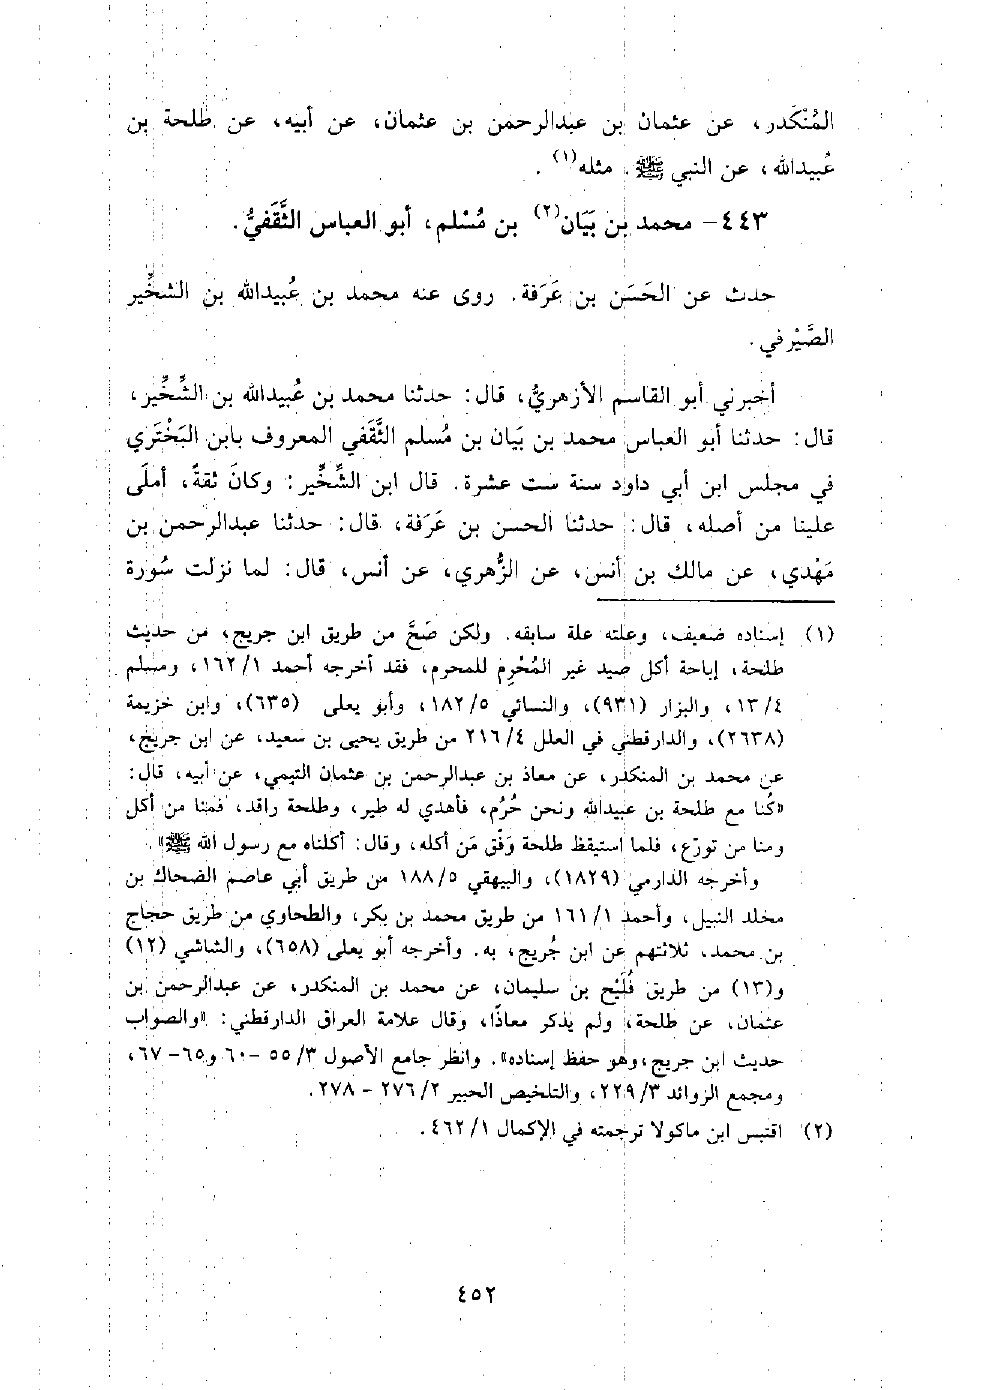 المُنْكَدر، عن عثمان بن عبدالرحمن بن عثمان، عن أبيه، عن طلحة بن
عُبيدالله، عن النبي ﷺ. مثله(١) .
٤٤٣- محمد بن بَيَان(٢) بن مُسْلم، أبو العباس الثَّقَفيُّ.
حدث عن الحَسَن بن عَرَفة. روى عنه محمد بن عُبيدالله بن الشخِّير
الصَّيْرفي.
أخبرني أبو القاسم الأزهريُّ، قال: حدثنا محمد بن عُبيدالله بن الشِّخِّير،
قال: حدثنا أبو العباس محمد بن بَيَان بن مُسلم الثَّقَفي المعروف بابن البَخْتَري
في مجلس ابن أبي داود سنة ست عشرة. قال ابن الشِّخِّير: وكانَ ثقةً، أملَى
علينا من أصله، قال: حدثنا الحسن بن عَرَفة، قال: حدثنا عبدالرحمن بن
مَهْدي، عن مالك بن أنس، عن الزُّهري، عن أنس، قال: لما نزلت سُورة
(١) إسناده ضعيف، وعلته علة سابقه. ولكن صَحَّ من طريق ابن جريج، من حديث
طلحة، إباحة أكل صيد غير المُحْرِم للمحرم، فقد أخرجه أحمد ١/ ١٦٢، ومسلم
٤/ ١٣، والبزار (٩٣١)، والنسائي ٥/ ١٨٢، وأبو يعلى (٦٣٥)، وابن خزيمة
(٢٦٣٨)، والدارقطني في العلل ٤/ ٢١٦ من طريق يحيى بن سعيد، عن ابن جريج،
عن محمد بن المنكدر، عن معاذ بن عبدالرحمن بن عثمان التيمي، عن أبيه، قال:
«كُنا مع طلحة بن عبيدالله ونحن حُرُم، فأهدي له طير، وطلحة راقد، فمنا من أكل
ومنا من تورّع، فلما استيقظ طلحة وَفَّق مَن أكله، وقال: أكلناه مع رسول الله ﷺ».
وأخرجه الدارمي (١٨٢٩)، والبيهقي ٥/ ١٨٨ من طريق أبي عاصم الضحاك بن
مخلد النبيل، وأحمد ١/ ١٦١ من طريق محمد بن بكر، والطحاوي من طريق حجاج
بن محمد، ثلاثتهم عن ابن جُريج، به. وأخرجه أبو يعلى (٦٥٨)، والشاشي (١٢)
و(١٣) من طريق فُلَيْح بن سليمان، عن محمد بن المنكدر، عن عبدالرحمن بن
عثمان، عن طلحة، ولم يذكر معاذًا، وقال علامة العراق الدارقطني: «والصواب
حديث ابن جريج، وهو حفظ إسناده». وانظر جامع الأصول ٣/ ٥٥ -٦٠ و٦٥- ٦٧،
ومجمع الزوائد ٣/ ٢٢٩، والتلخيص الحبير ٢/ ٢٧٦ - ٢٧٨.
(٢) اقتبس ابن ماكولا ترجمته في الإكمال ١/ ٤٦٢.
٤٥٢